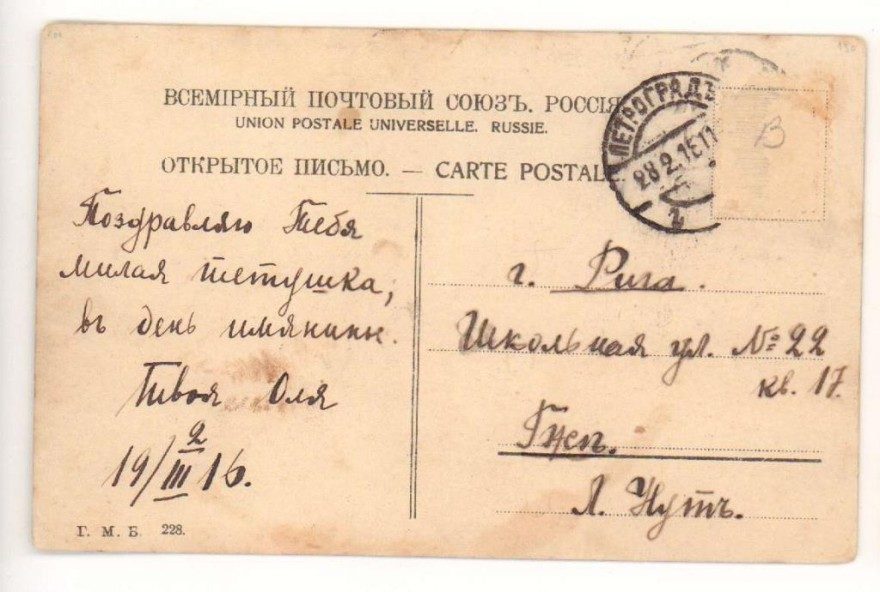 ВСЕМІРНЫЙ ПОЧТОВЫЙ СОЮЗЪ. РОССІЯ
UNION POSTALE UNIVERSELLE. RUSSIE.
ОТКРЫТОЕ ПИСЬМО. — CARTE POSTALE.
ПЕТРОГРАДЪ
28 2 16 11
В
Поздравляю Тебя
милая тетушка,
въ день имянинъ.
Твоя Оля
19 2/III 16.
г. Рига.
Школьная ул. № 22
кв. 17.
Гжѣ.
Л. Нутъ.
Г. М. Б. 228.